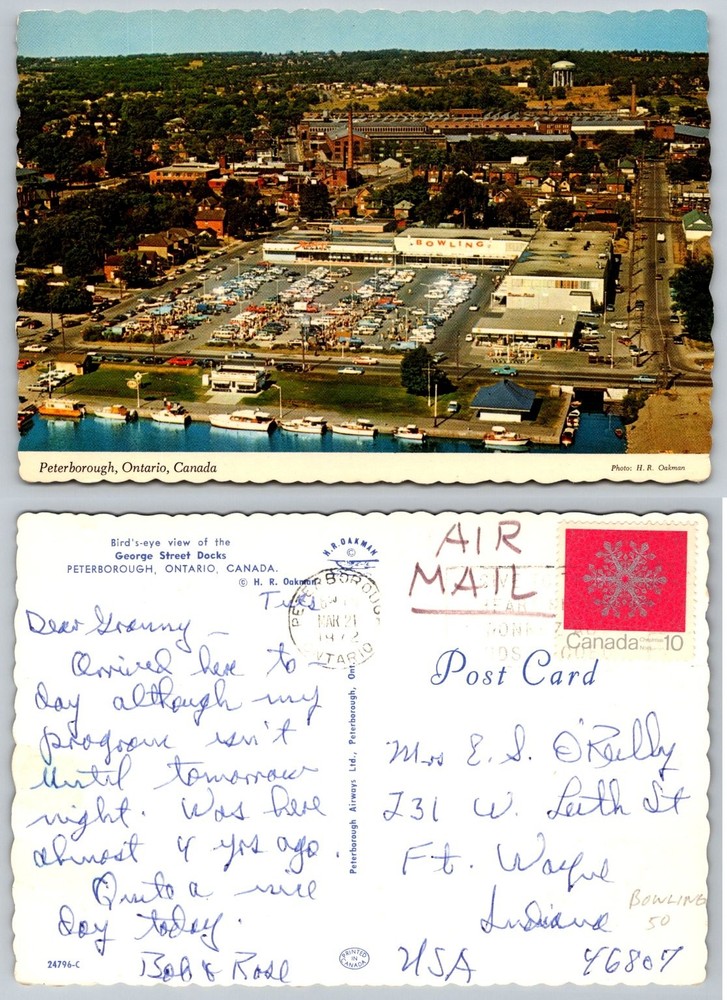 BOWLING
Peterborough, Ontario, Canada
Photo: H. R. Oakman
Bird's-eye view of the
George Street Docks
PETERBOROUGH, ONTARIO, CANADA.
© H. R. Oakman
H. R. OAKMAN
©
AIR
MAIL
PETERBOROUGH
MAR 21
1972
ONTARIO
Canada 10
Post Card
Tues
Dear Granny –
Arrived here to-
day although my
program isn't
until tomorrow
night. Was here
almost 4 yrs ago.
Quite a nice
day today.
Bob & Rose
Peterborough Airways Ltd., Peterborough, Ont.
Mrs E. S. O'Reilly
231 W. Leith St
Ft. Wayne
Indiana
USA 46807
BOWLING
50
24796-C
PRINTED IN CANADA